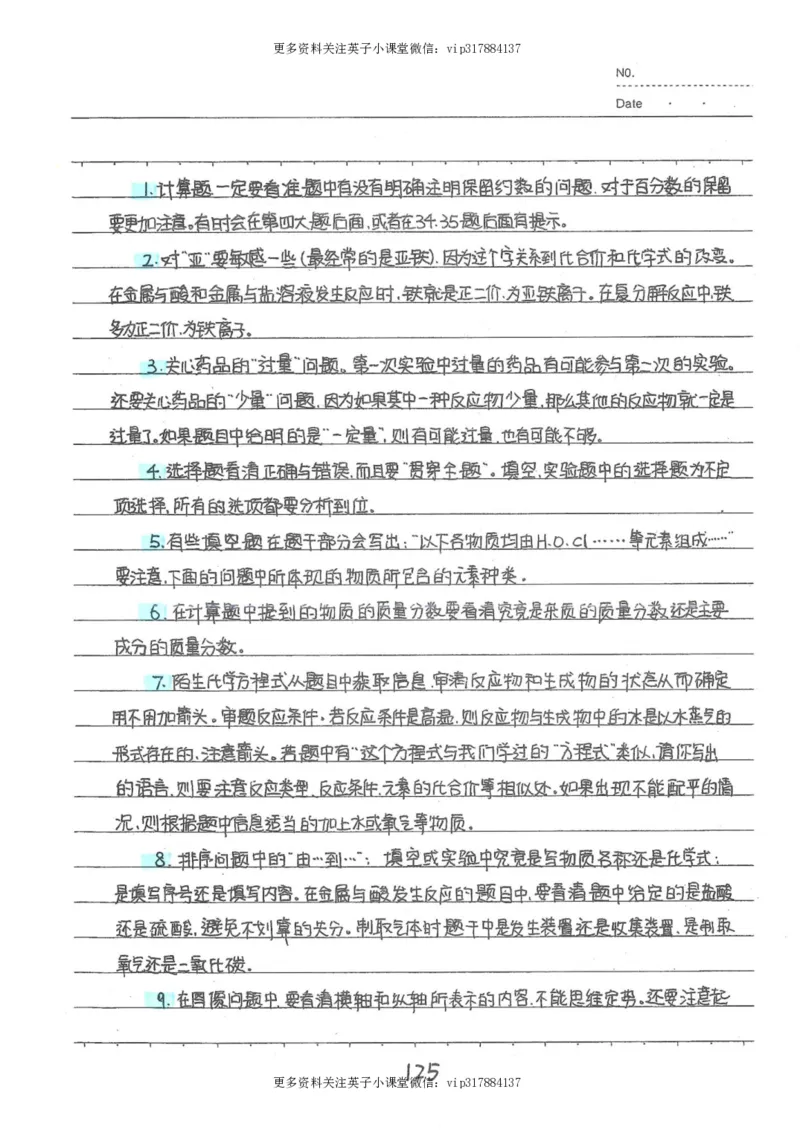 更多资料关注英子小课堂微信：vip317884137
NO.
Date
1.计算题一定要看准题中有没有明确注明保留约数的问题.对于百分数的保留
要更加注意。有时会在第四大题后面,或者在34.35题后面有提示。
2.对"亚"要敏感一些(最经常的是亚铁).因为这个字关系到化合价和化学式的改变。
在金属与酸和金属与盐溶液发生反应时,铁就是正二价.为亚铁离子。在复分解反应中,铁
多为正二价.为铁离子。
3.关心药品的"过量"问题。第一次实验中过量的药品有可能参与第二次的实验。
还要关心药品的"少量"问题.因为如果其中一种反应物少量,那么其他的反应物就一定是
过量了。如果题目中给明的是"一定量",则有可能过量.也有可能不够。
4.选择题看清正确与错误,而且要"贯穿全题"。填空,实验题中的选择题为不定
项选择,所有的选项都要分析到位.
5.有些填空题在题干部分会写出:"以下各物质均由H.O.Cl……等元素组成……"
要注意,下面的问题中所体现的物质所包含的元素种类.
6.在计算题中提到的物质的质量分数要看清究竟是杂质的质量分数还是主要
成分的质量分数。
7.陌生化学方程式从题目中获取信息.审清反应物和生成物的状态从而确定
用不用加箭头。审题反应条件.若反应条件是高温.则反应物与生成物中的水是以水蒸气的
形式存在的,注意箭头。若题中有"这个方程式与我们学过的"方程式"类似,请你写出
的语言,则要注意反应类型.反应条件.元素的化合价等相似处.如果出现不能配平的情
况,则根据题中信息适当的加上水或氧气等物质.
8.排序问题中的"由…到…";填空或实验中究竟是写物质名称还是化学式;
是填写序号还是填写内容。在金属与酸发生反应的题目中,要看清题中给定的是盐酸
还是硫酸,避免不划算的失分。制取气体时题干中是发生装置还是收集装置.是制取
氧气还是二氧化碳.
9.在图像问题中,要看清横轴和纵轴所表示的内容.不能思维定势。还要注意起
125
更多资料关注英子小课堂微信：vip317884137